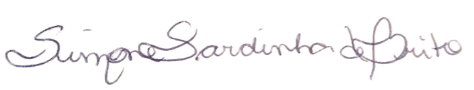 Simone Sardinha de Brito